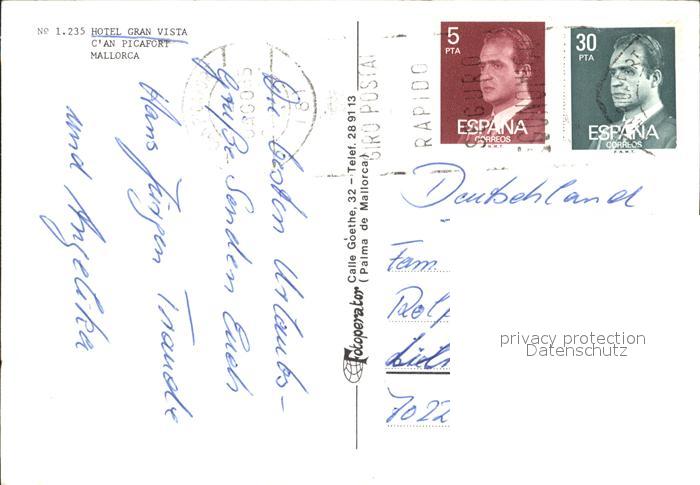 Nº 1.235 HOTEL GRAN VISTA
C'AN PICAFORT
MALLORCA
Die besten Urlaubs-
grüße Senden Euch
Hans Jürgen Traudl
und Angelika
Fotoperator Calle Goethe, 32 - Telef. 28 91 13
( Palma de Mallorca )
GIRO POSTAL
RAPIDO
SEGURO
5
PTA
ESPAÑA
CORREOS
F.N.M.T.
30
PTA
ESPAÑA
CORREOS
F.N.M.T.
Deutschland
Fam
Rolf
7022
privacy protection
Datenschutz